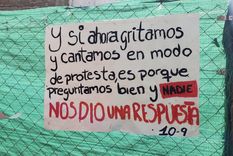 Y si ahora gritamos
y cantamos en modo
de protesta, es porque
preguntamos bien y NADIE
NOS DIO UNA RESPUESTA
10-9